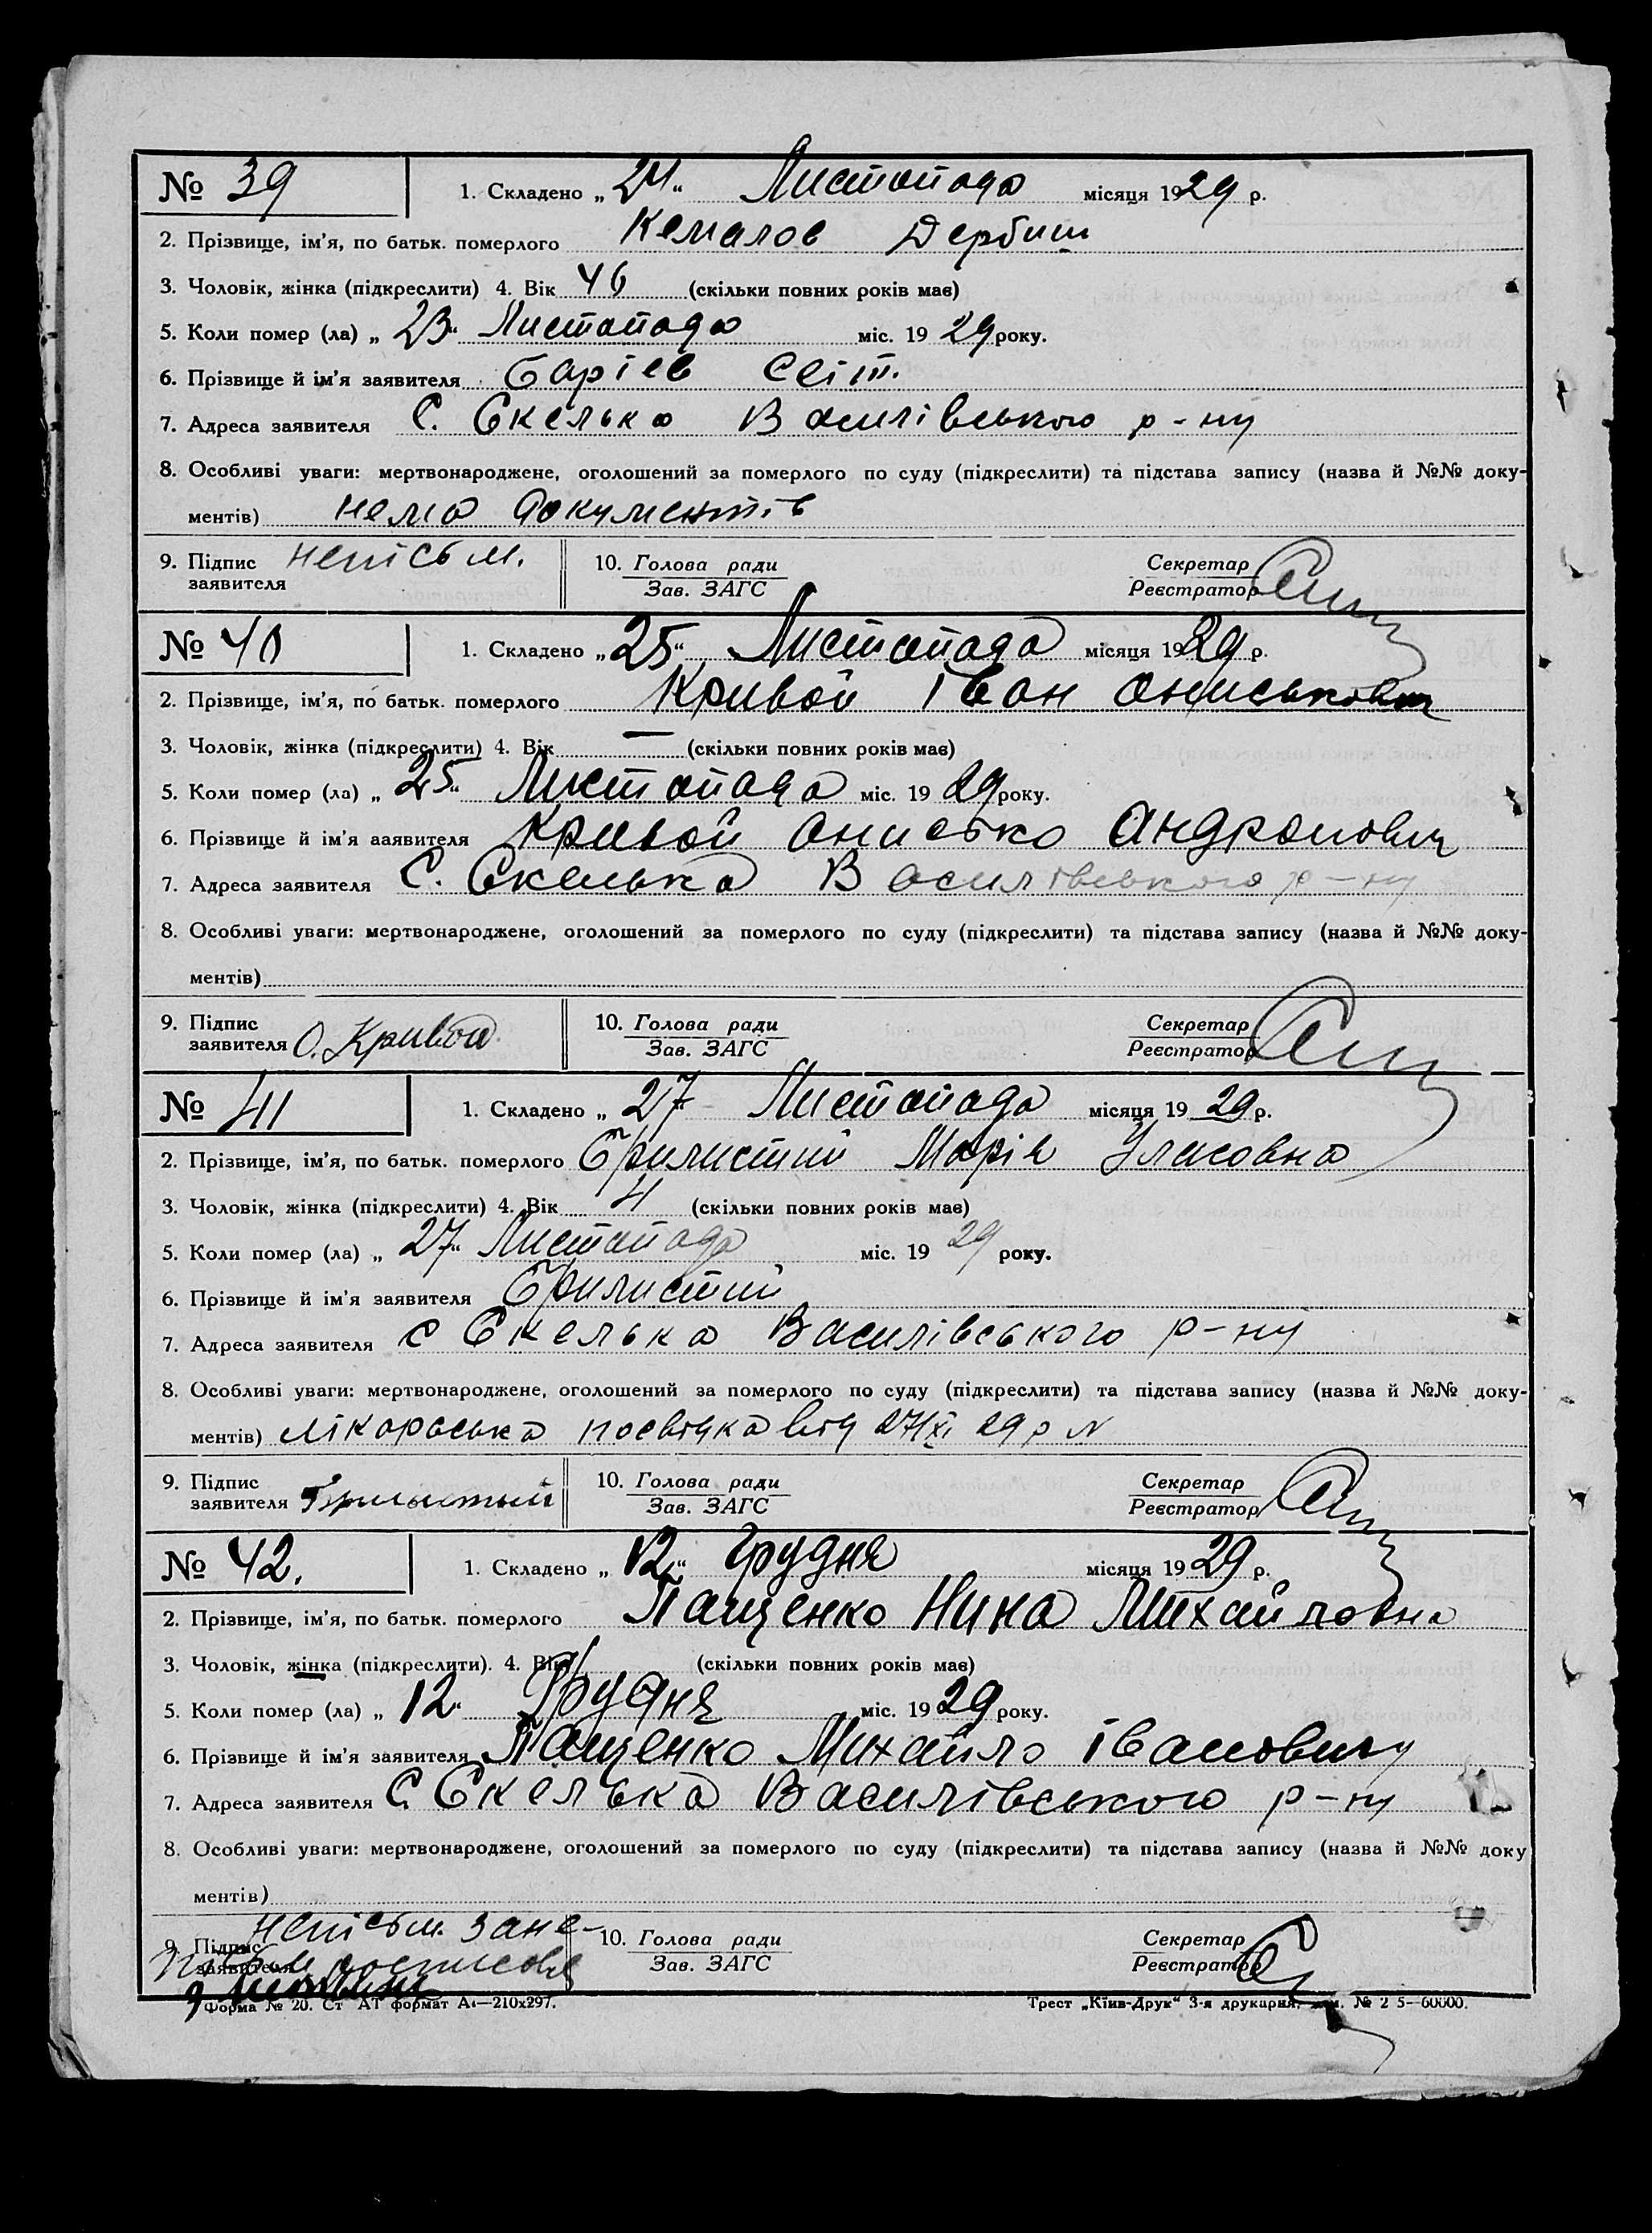 № 39 1. Складено „ 24 “ Листопада місяця 1929 р.
2. Прізвище, ім’я, по батьк. померлого Кемалов Дербиш
3. Чоловік, жінка (підкреслити) 4. Вік 46 (скільки повних років має)
5. Коли помер (ла) „ 23 “ Листопада міс. 19 29 року.
6. Прізвище й ім’я заявителя Баріев Сеіт.
7. Адреса заявителя С. Скелька Василівського р-ну
8. Особливі уваги: мертвонароджене, оголошений за померлого по суду (підкреслити) та підстава запису (назва й №№ доку-
ментів) нема документів
9. Підпис заявителя непісьм. 10. Голова ради Зав. ЗАГС Секретар Реєстратор
№ 40 1. Складено „ 25 “ Листопада місяця 1929 р.
2. Прізвище, ім’я, по батьк. померлого Кривой Іван Ониськович
3. Чоловік, жінка (підкреслити) 4. Вік — (скільки повних років має)
5. Коли помер (ла) „ 25 “ Листопада міс. 19 29 року.
6. Прізвище й ім’я ааявителя Кривой Онисько Андронович
7. Адреса заявителя С. Скелька Василівського р-ну
8. Особливі уваги: мертвонароджене, оголошений за померлого по суду (підкреслити) та підстава запису (назва й №№ доку-
ментів)
9. Підпис заявителя О. Кривой 10. Голова ради Зав. ЗАГС Секретар Реєстратор
№ 41 1. Складено „ 27 “ Листопада місяця 19 29 р.
2. Прізвище, ім’я, по батьк. померлого Марія Уласовна
3. Чоловік, жінка (підкреслити) 4. Вік 4 (скільки повних років має)
5. Коли помер (ла) „ 27 “ Листопада міс. 19 29 року.
6. Прізвище й ім’я заявителя
7. Адреса заявителя с Скелька Василівського р-ну
8. Особливі уваги: мертвонароджене, оголошений за померлого по суду (підкреслити) та підстава запису (назва й №№ доку-
ментів) лікарська посвідка від 27/XI 29 р №
9. Підпис заявителя 10. Голова ради Зав. ЗАГС Секретар Реєстратор
№ 42. 1. Складено „ 12 “ Грудня місяця 19 29 р.
2. Прізвище, ім’я, по батьк. померлого Пащенко Нина Михайловна
3. Чоловік, жінка (підкреслити). 4. Вік (скільки повних років має)
5. Коли помер (ла) „ 12 “ Грудня міс. 19 29 року.
6. Прізвище й ім’я заявителя Пащенко Михайло Іванович
7. Адреса заявителя С. Скелька Василівського р-ну
8. Особливі уваги: мертвонароджене, оголошений за померлого по суду (підкреслити) та підстава запису (назва й №№ доку
ментів)
9. Підпис заявителя непісьм. за не- 10. Голова ради Зав. ЗАГС Секретар Реєстратор
Форма № 20. Ст АТ формат А4—210x297. Трест „Київ-Друк“ 3-я друкарня,